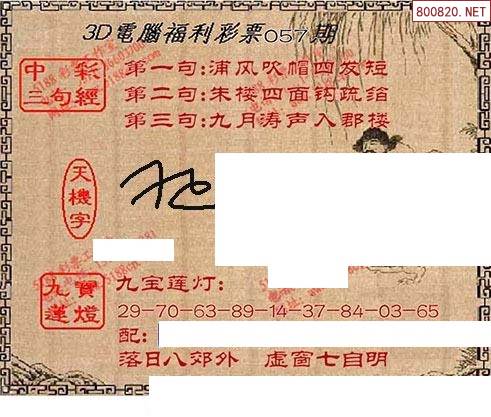 800820.NET
3D電腦福利彩票057期
中彩
三句經
第一句:浦风吹帽四发短
第二句:朱楼四面钩疏箔
第三句:九月涛声入郡楼
天機字
九寶
蓮燈
九宝莲灯:
29-70-63-89-14-37-84-03-65
配:
落日八郊外 虚窗七自明